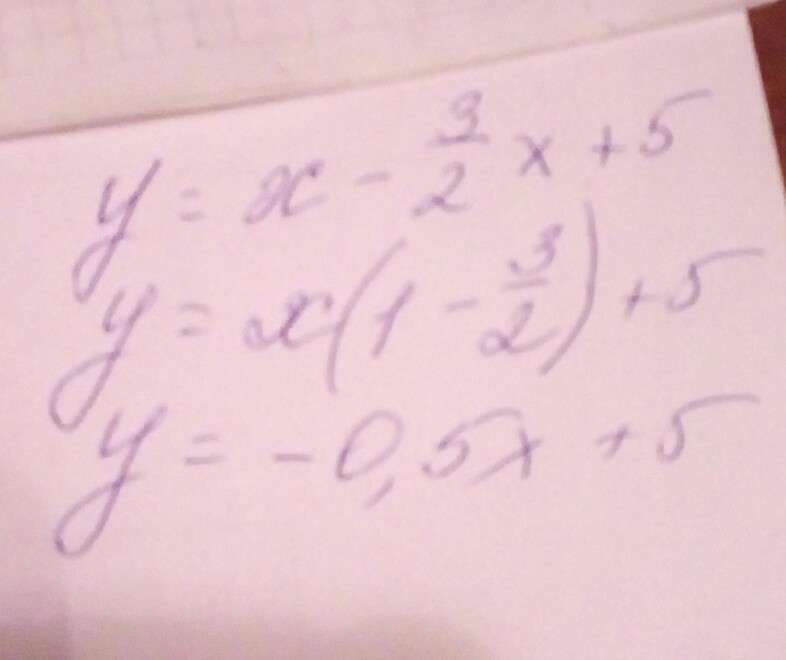 y = x - 3/2 x + 5
y = x(1 - 3/2) + 5
y = -0,5x + 5